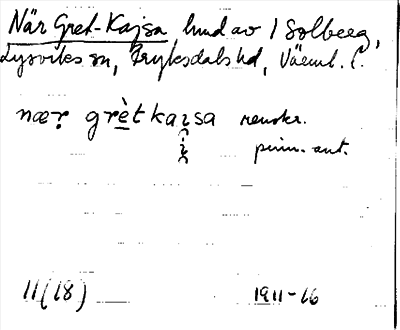 När Gret-Kajsa, lund av 1 Solberg,
Lysviks sn, Fryksdals hd, Värml. l.
næṛ grètkaisa renskr.
prim. ant.
11(18) 1911-16